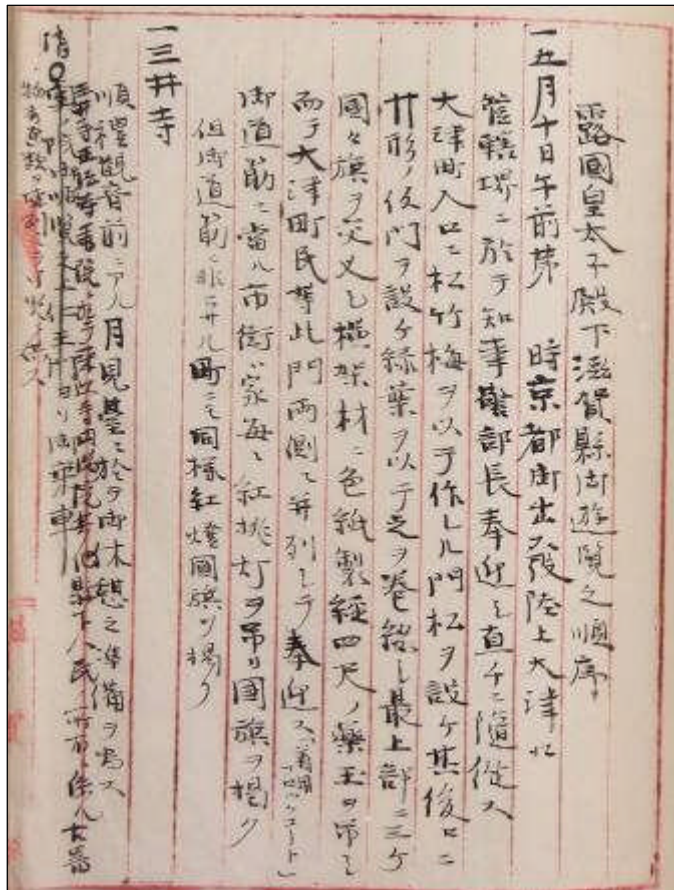 露國皇太子殿下滋賀縣御遊覧之順序
一五月十日午前第　時京都御出發陸上大津ニ
管轄堺ニ於テ知事警部長奉迎シ直チニ隨從ス
大津町入口ニ松竹梅ヲ以テ作レル門松ヲ設ケ其後口ニ
廾形ノ仮門ヲ設ケ緑葉ヲ以テ之ヲ巻絡シ最上部ニ三ケ
國々旗ヲ交叉シ横架材ニ色紙製経四尺ノ藥玉ヲ吊シ
而テ大津町民等此門両側ニ并列シテ奉迎ス
御道筋ニ當ル市街ハ家毎ニ紅挑灯ヲ吊リ國旗ヲ揚ク
但御道筋ニ非サル町ニモ同様紅燈國旗ヲ揚ク
一三井寺
順禮觀音前ニアル月見臺ニ於テ御休憩之準備ヲ為ス
人民所有ニ係ル古器
ヨリ御乗車
物